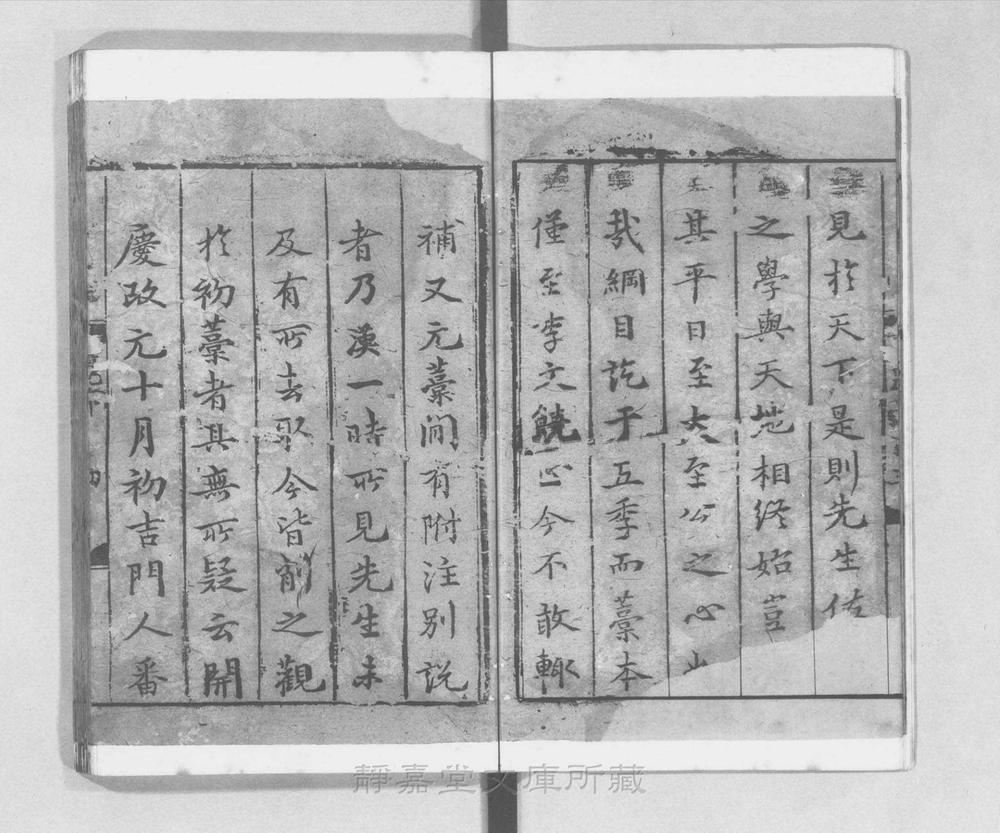 見於天下是則先生佐
之學與天地相終始豈
其平日至大至公之心
哉綱目訖于五季而藁本
僅至李文饒止今不敢輙
補又元藁間有附注別説
者乃漢一時所見先生未
及有所去取今皆削之觀
於初藁者其無所疑云開
慶改元十月初吉門人番
靜嘉堂文庫所藏